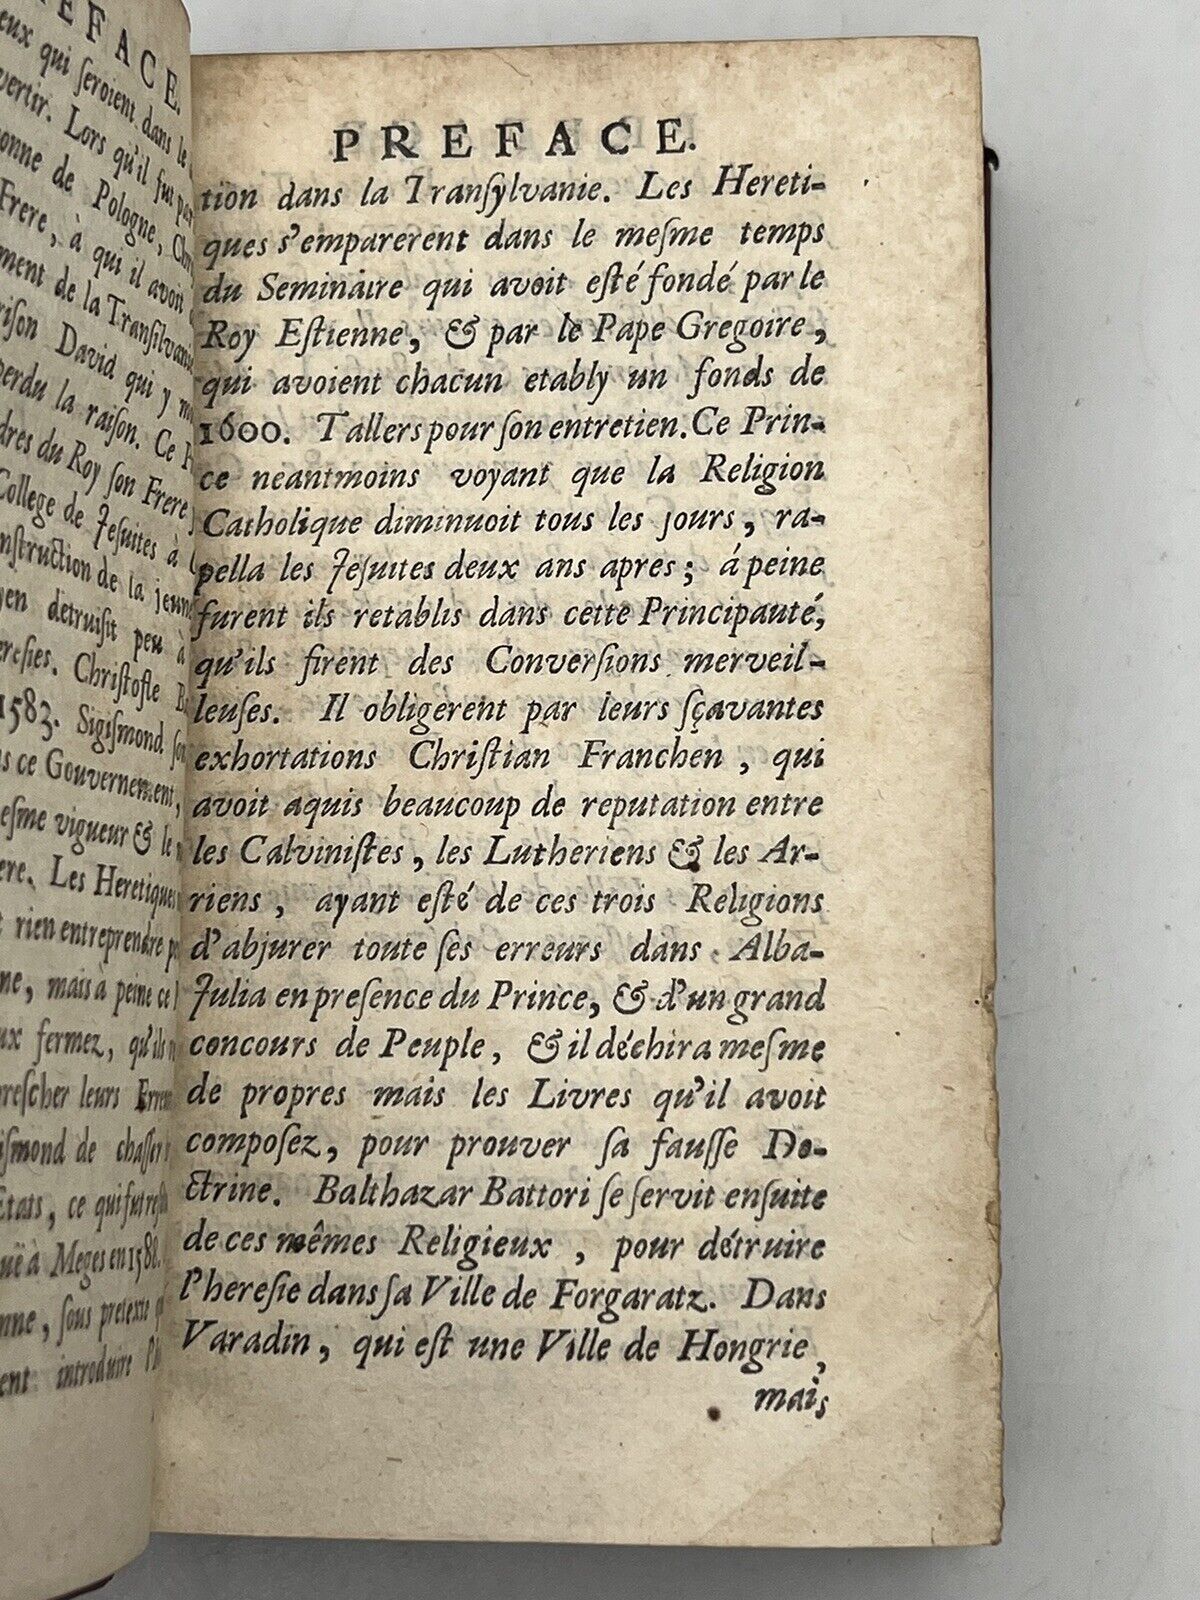 EFACE.
eux qui ſeroient dans le
vertir. Lors qu'il fut
onne de Pologne,
Frere, à qui il avoit
ment de la
riſon David qui y
perdu la raiſon. Ce
dres du Roy ſon Frere
College de Jeſuites à
nſtruction de la jeune
yen détruiſit peu à
ereſies. Chriſtofle
1583. Sigiſmond ſon
s ce Gouvernement,
eſme vigueur & le
ere. Les Heretiques
rien entreprendre
ne, mais à peine ce
ux fermez, qu'ils
preſcher leurs
iſmond de chaſſer
Etats, ce qui fut
ué à Meges en 1588.
nne, ſous pretexte
ent introduire
PREFACE.
tion dans la Tranſylvanie. Les Hereti-
ques s'emparerent dans le meſme temps
du Seminaire qui avoit eſté fondé par le
Roy Eſtienne, & par le Pape Gregoire,
qui avoient chacun etably un fonds de
1600. Tallers pour ſon entretien. Ce Prin-
ce neantmoins voyant que la Religion
Catholique diminuoit tous les jours, ra-
pella les Jeſuites deux ans apres; á peine
furent ils retablis dans cette Principauté,
qu'ils firent des Converſions merveil-
leuſes. Il obligerent par leurs ſçavantes
exhortations Chriſtian Franchen, qui
avoit aquis beaucoup de reputation entre
les Calviniſtes, les Lutheriens & les Ar-
riens, ayant eſté de ces trois Religions
d'abjurer toute ſes erreurs dans Alba-
Julia en preſence du Prince, & d'un grand
concours de Peuple, & il déchira meſme
de propres mais les Livres qu'il avoit
compoſez, pour prouver ſa fauſſe Do-
ctrine. Balthazar Battori ſe ſervit enſuite
de ces mêmes Religieux, pour détruire
l'hereſie dans ſa Ville de Forgaratz. Dans
Varadin, qui eſt une Ville de Hongrie,
mais